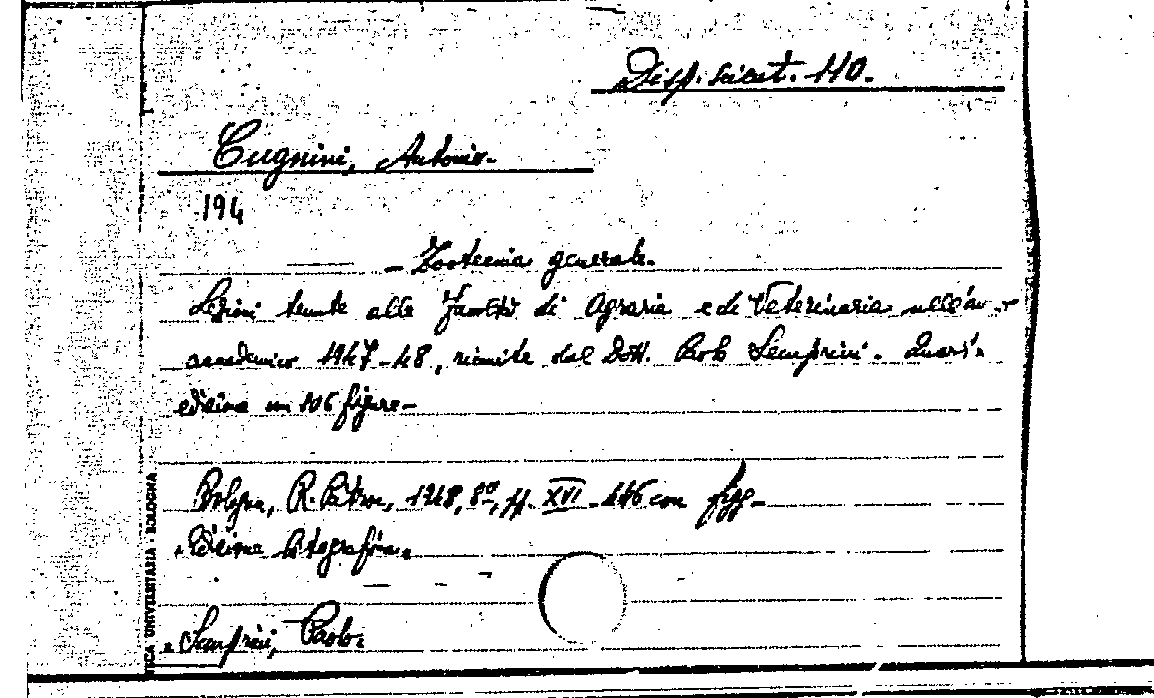 Disp. scient. 110.
Cugnini, Antonio.
194
— Zootecnia generale.
Lezioni tenute alle Facoltà di Agraria e di Veterinaria nell'an-
accademico 1947-48, riunite dal Dott. Paolo Semprini.
edizione con 106 figure—
Bologna, R. Pàtron, 1948, 8º, pp. XVI-446 con figg—
Edizione litografica.
Semprini, Paolo.
TICA UNIVERSITARIA · BOLOGNA